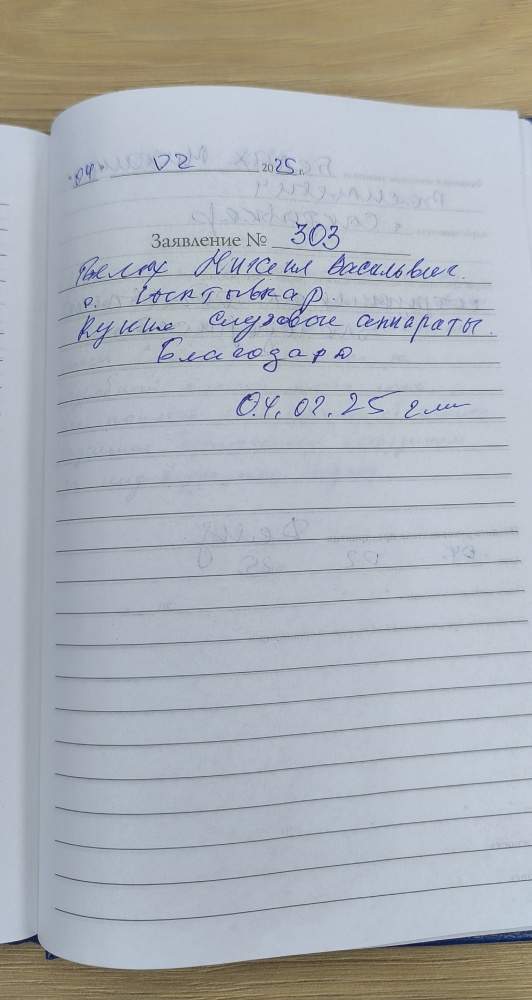 "04" 02 2025 г.
Заявление № 303
Белых Михаил Васильевич.
г. Сыктывкар.
Купил слуховые аппараты.
Благодарю
04.02.25